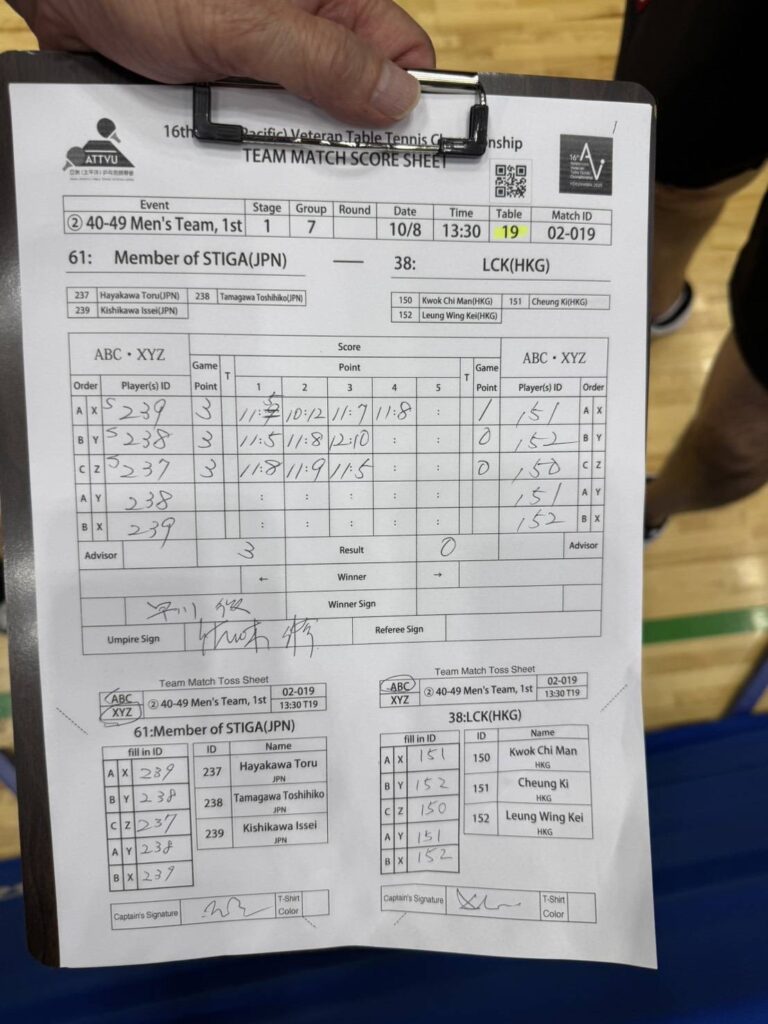 16th Pacific) Veteran Table Tennis Championship
TEAM MATCH SCORE SHEET
ATTVU
16th
AV
Event Stage Group Round Date Time Table Match ID
② 40-49 Men's Team, 1st 1 7 10/8 13:30 19 02-019
61: Member of STIGA(JPN) — 38: LCK(HKG)
237 Hayakawa Toru(JPN) 238 Tamagawa Toshihiko(JPN)
239 Kishikawa Issei(JPN)
150 Kwok Chi Man(HKG) 151 Cheung Ki(HKG)
152 Leung Wing Kei(HKG)
ABC・XYZ Score ABC・XYZ
Game Point T Point T Game Point
Order Player(s) ID 1 2 3 4 5 Player(s) ID Order
A X S 239 3 11:5 10:12 11:7 11:8 : 1 151 A X
B Y S 238 3 11:5 11:8 12:10 : : 0 152 B Y
C Z S 237 3 11:8 11:9 11:5 : : 0 150 C Z
A Y 238 : : : : : 151 A Y
B X 239 : : : : : 152 B X
Advisor 3 Result 0 Advisor
← Winner →
早川 Winner Sign
Umpire Sign Referee Sign
Team Match Toss Sheet
ABC
XYZ
② 40-49 Men's Team, 1st
02-019
13:30 T19
61:Member of STIGA(JPN)
fill in ID
A X 239
B Y 238
C Z 237
A Y 238
B X 239
ID Name
237 Hayakawa Toru
JPN
238 Tamagawa Toshihiko
JPN
239 Kishikawa Issei
JPN
Captain's Signature
T-Shirt
Color
Team Match Toss Sheet
ABC
XYZ
② 40-49 Men's Team, 1st
02-019
13:30 T19
38:LCK(HKG)
fill in ID
A X 151
B Y 152
C Z 150
A Y 151
B X 152
ID Name
150 Kwok Chi Man
HKG
151 Cheung Ki
HKG
152 Leung Wing Kei
HKG
Captain's Signature
T-Shirt
Color